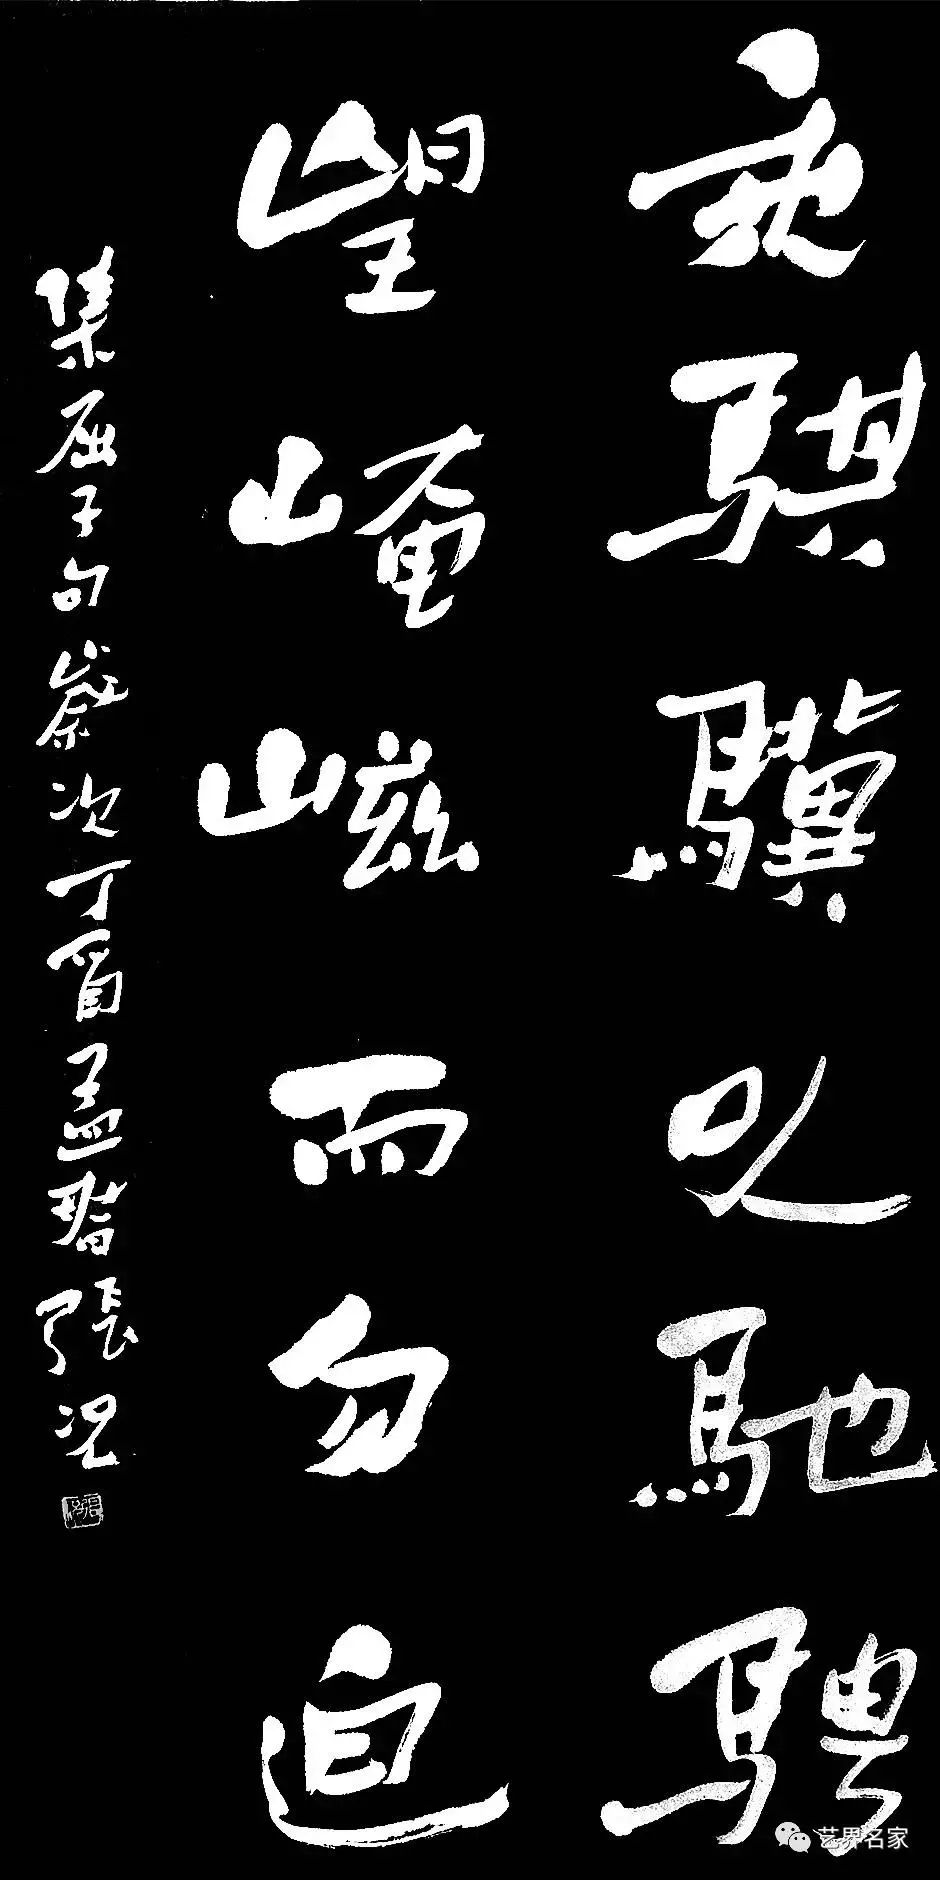 乘騏驥以馳騁
望崦嵫而勿迫
集屈子句歲次丁酉孟張況
艺界名家